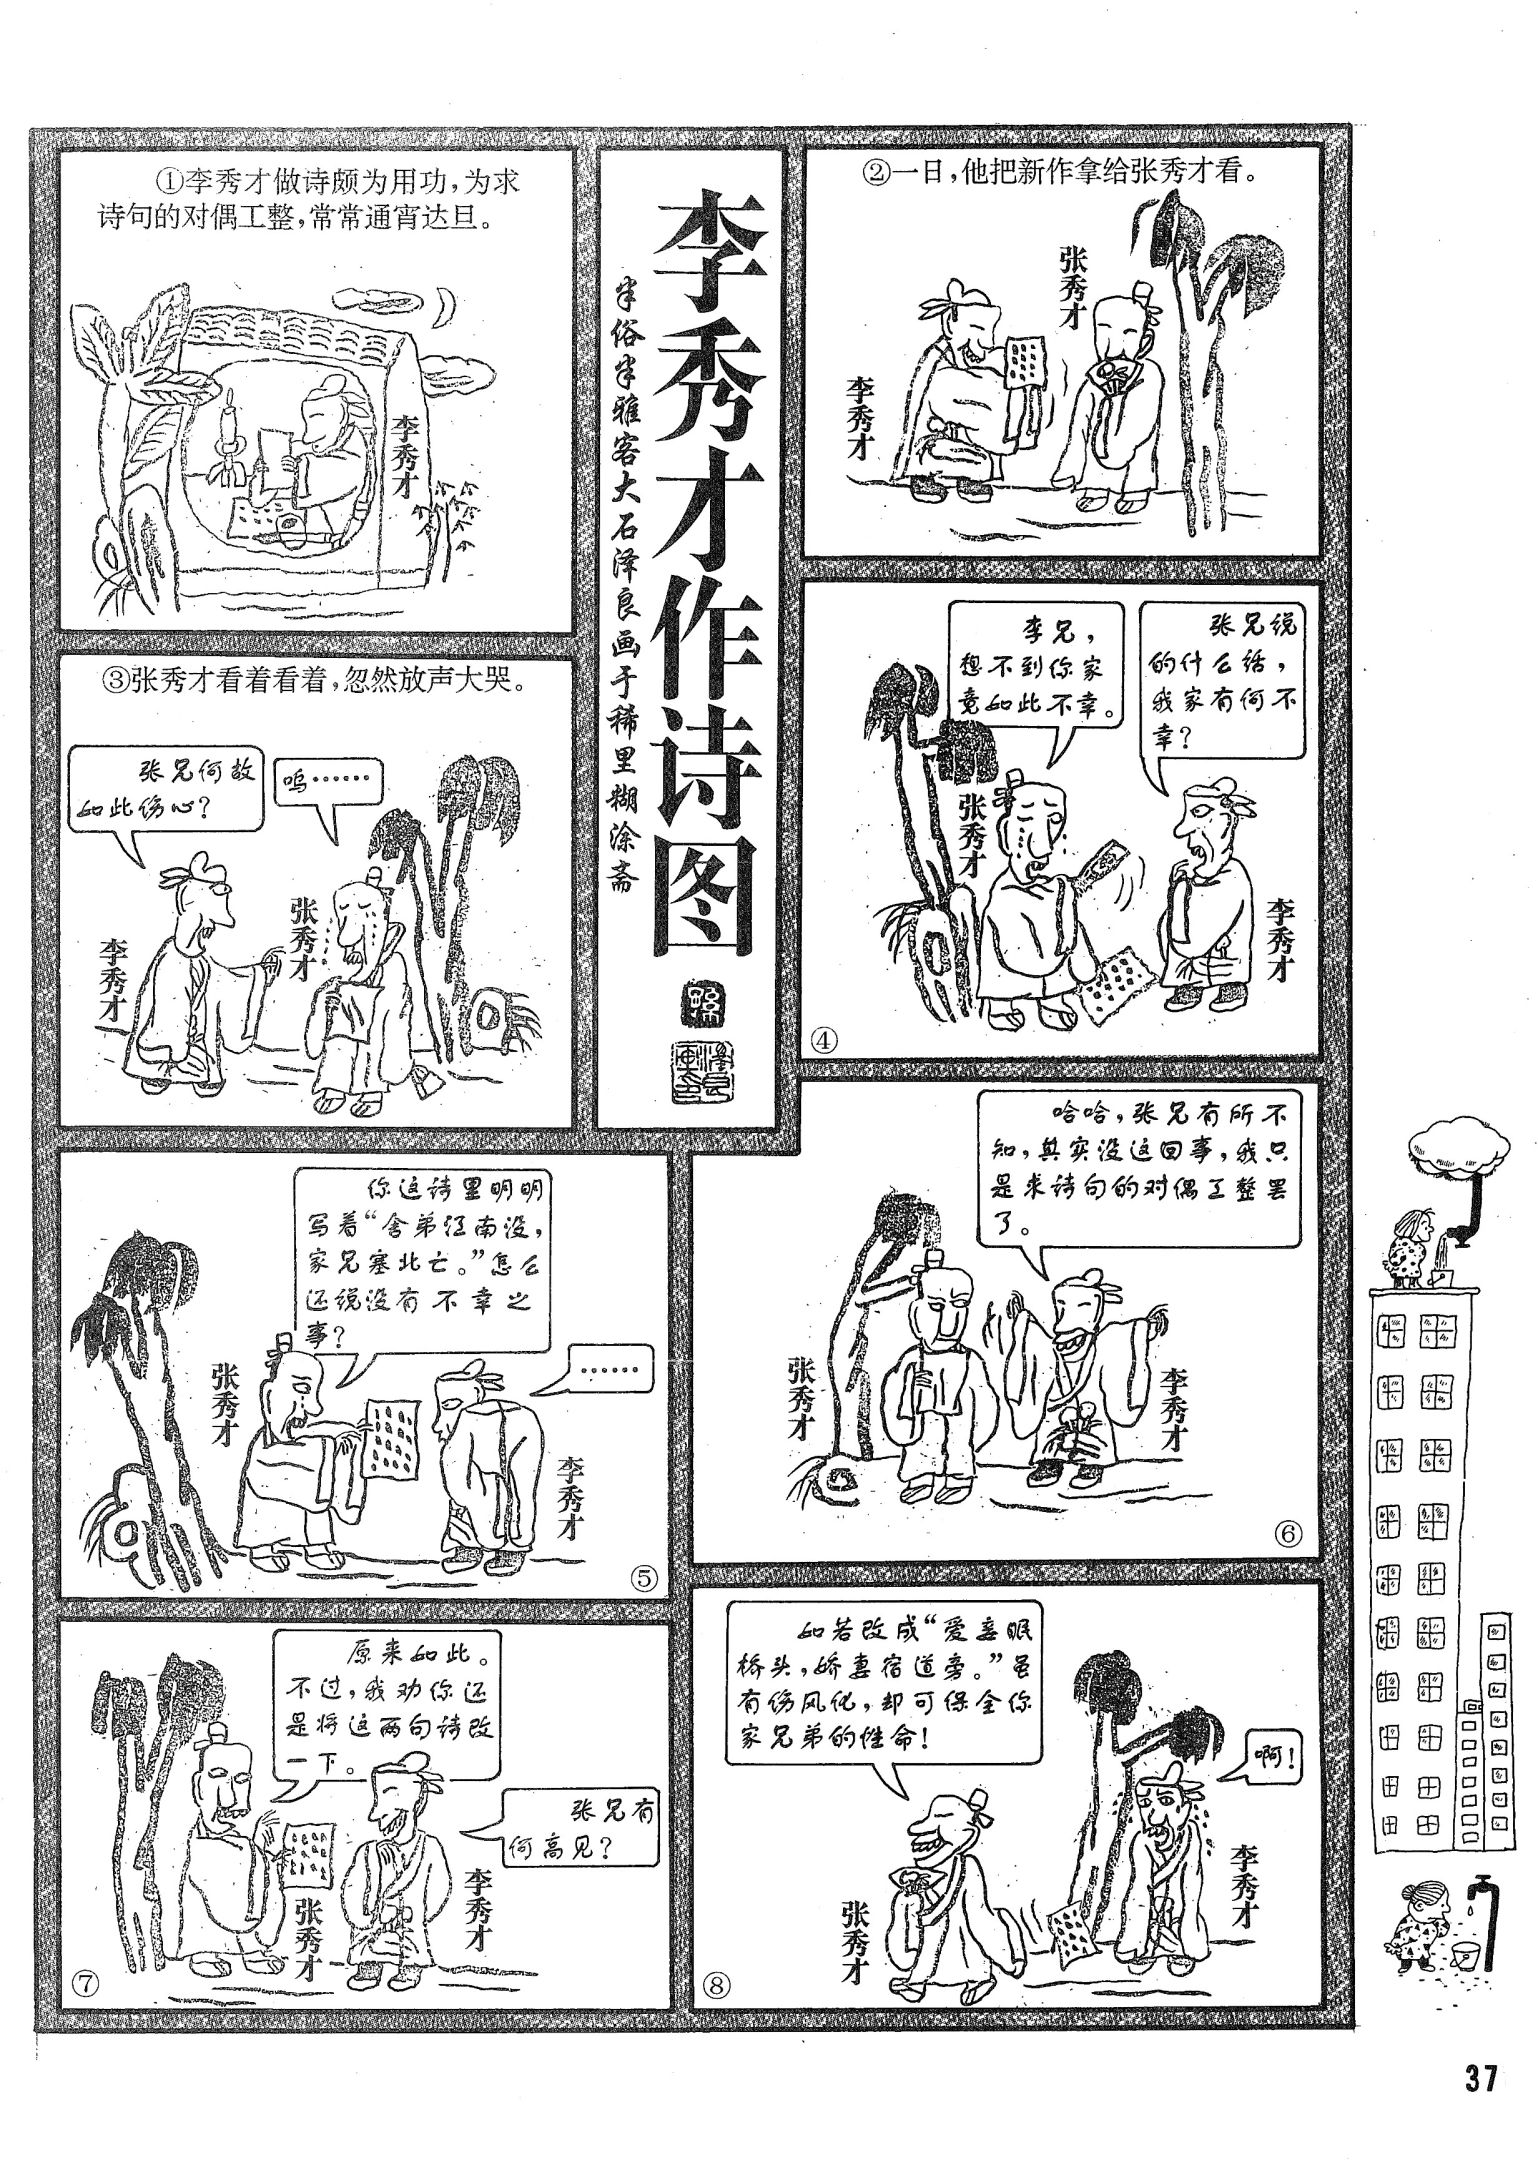 李秀才作诗图
半俗半雅客大石泽良画于稀里糊涂斋
①李秀才做诗颇为用功，为求
诗句的对偶工整，常常通宵达旦。
李秀才
②一日，他把新作拿给张秀才看。
张秀才
李秀才
③张秀才看着看着，忽然放声大哭。
张兄何故
如此伤心？
呜……
李秀才
张秀才
李兄，
想不到你家
竟如此不幸。
张兄说
的什么话，
我家有何不
幸？
张秀才
李秀才
④
你这诗里明明
写着“舍弟江南没，
家兄塞北亡。”怎么
还说没有不幸之
事？
……
张秀才
李秀才
⑤
哈哈，张兄有所不
知，其实没这回事，我只
是求诗句的对偶工整罢
了。
张秀才
李秀才
⑥
原来如此。
不过，我劝你还
是将这两句诗改
一下。
张兄有
何高见？
张秀才
李秀才
⑦
如若改成“爱妾眠
桥头，娇妻宿道旁。”虽
有伤风化，却可保全你
家兄弟的性命！
啊！
张秀才
李秀才
⑧
37